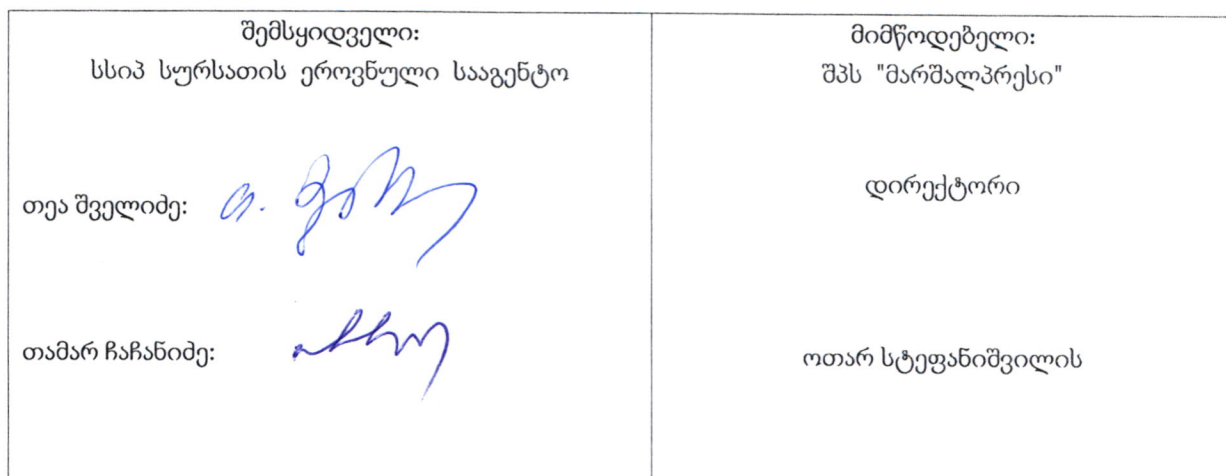 შემსყიდველი:
სსიპ სურსათის ეროვნული სააგენტო
თეა შველიძე:
თამარ ჩაჩანიძე:
მიმწოდებელი:
შპს "მარშალპრესი"
დირექტორი
ოთარ სტეფანიშვილის